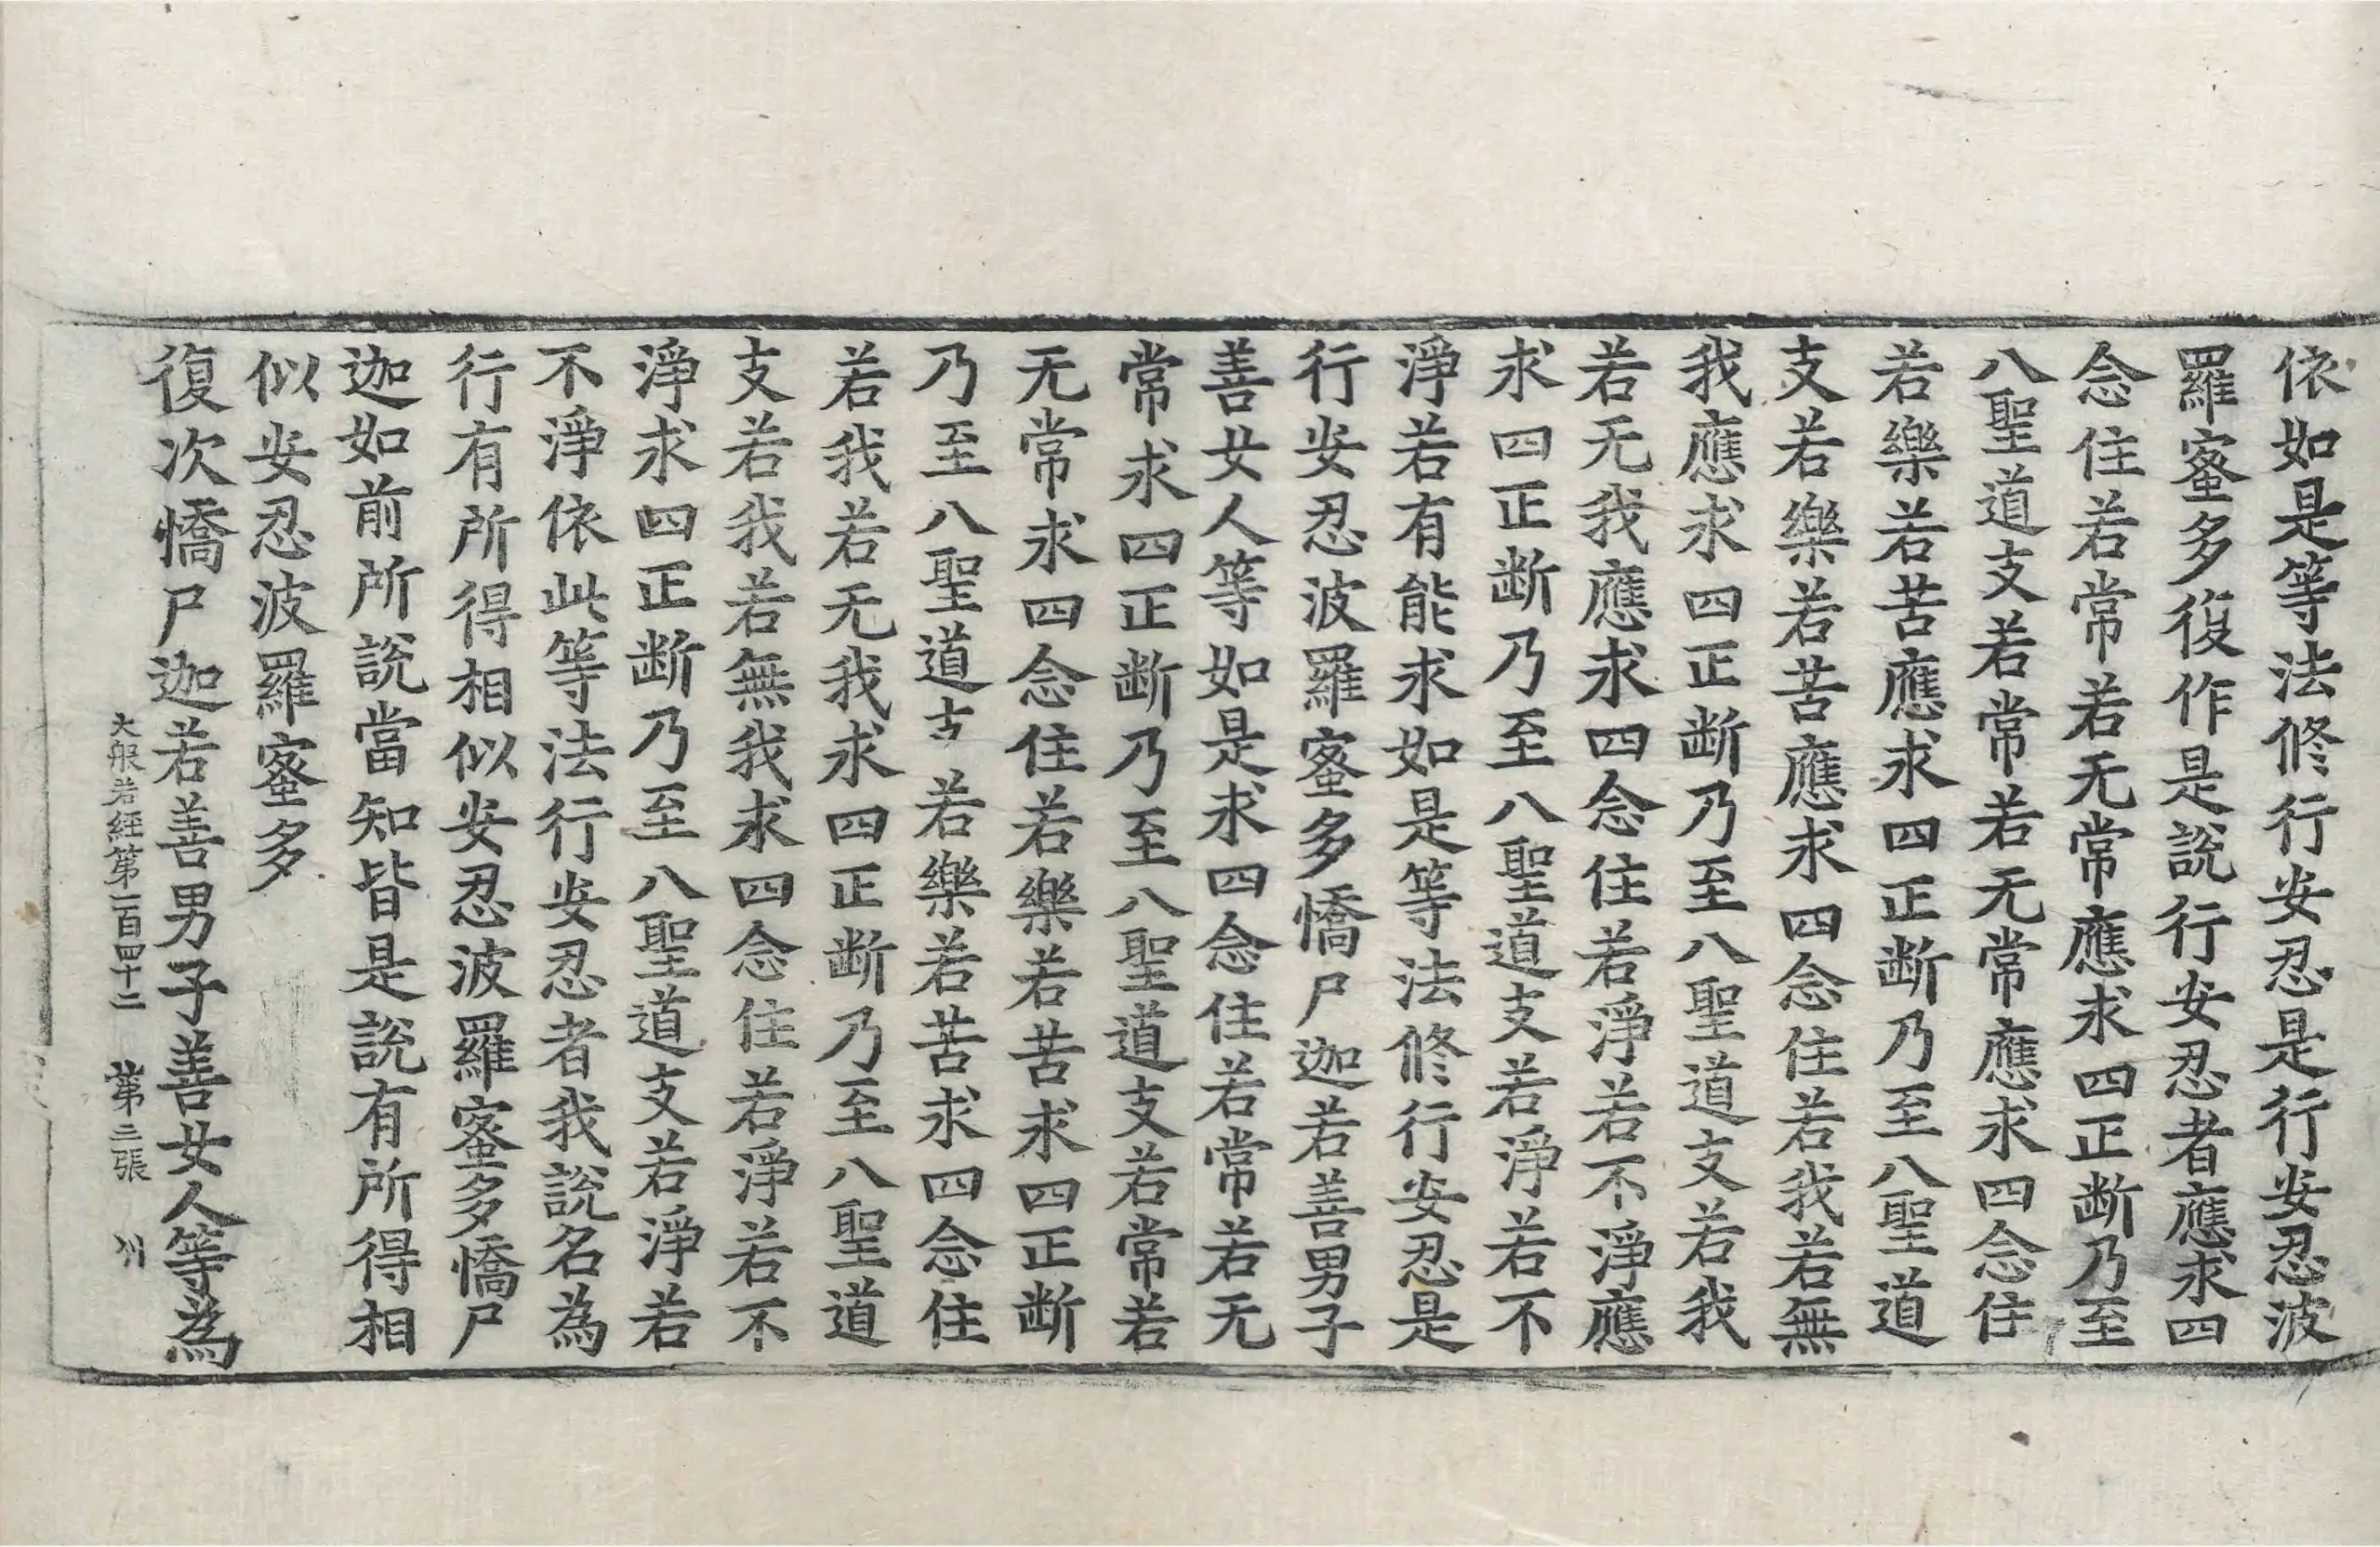 依如是等法修行安忍是行安忍波
羅蜜多復作是說行安忍者應求四
念住若常若无常應求四正断乃至
八聖道支若常若无常應求四念住
若樂若苦應求四正断乃至八聖道
支若樂若苦應求四念住若我若無
我應求四正断乃至八聖道支若我
若无我應求四念住若淨若不淨應
求四正断乃至八聖道支若淨若不
淨若有能求如是等法修行安忍是
行安忍波羅蜜多憍尸迦若善男子
善女人等如是求四念住若常若无
常求四正断乃至八聖道支若常若
无常求四念住若樂若苦求四正断
乃至八聖道支若樂若苦求四念住
若我若无我求四正断乃至八聖道
支若我若無我求四念住若淨若不
淨求四正断乃至八聖道支若淨若
不淨依此等法行安忍者我說名為
行有所得相似安忍波羅蜜多憍尸
迦如前所說當知皆是說有所得相
似安忍波羅蜜多
復次憍尸迦若善男子善女人等為
大般若經第一百四十二 第二張